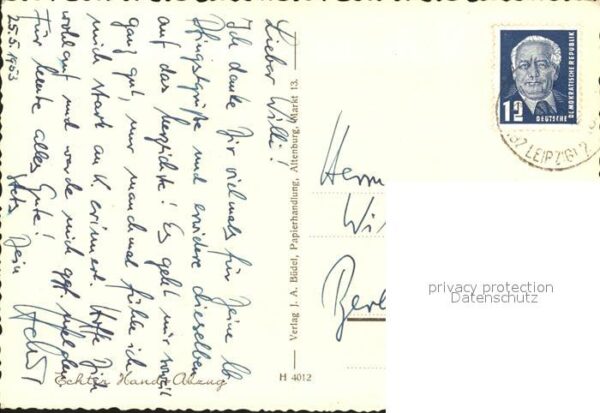 Lieber Willi!
Ich danke Dir vielmals für Deine lb
Pfingstgrüße und erwidere dieselben
auf das herzlichste! Es geht mir soweit
ganz gut, nur manchmal fühle ich
mich stark an K. erinnert. Hoffe Dich
wohlauf und werde mich ggf. melden.
Für heute alles Gute!
Stets Dein
25.5.1953
Echter Hand-Abzug
Verlag J. A. Bödel, Papierhandlung, Altenburg, Markt 13.
H 4012
Herrn
Wi
Berl
12
DEUTSCHE
DEMOKRATISCHE REPUBLIK
LEIPZIG
privacy protection
Datenschutz